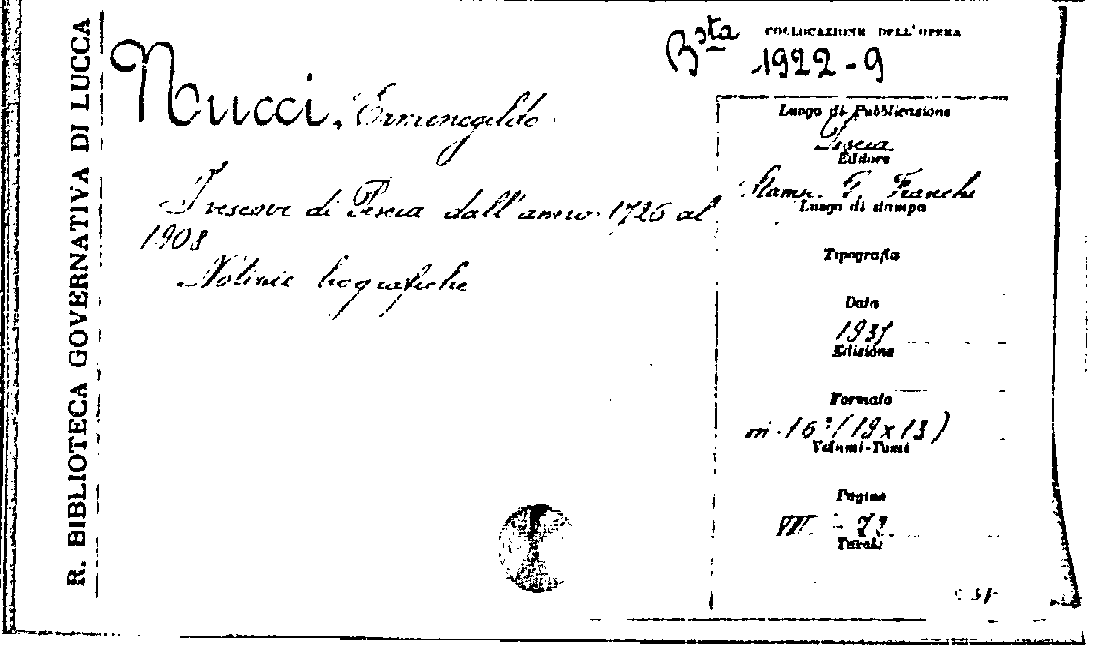 R. BIBLIOTECA GOVERNATIVA DI LUCCA
Nucci, Ermenegildo
I vescovi di Pescia dall'anno 1726 al
1908
Notizie biografiche
Bsta
COLLOCAZIONE DELL'OPERA
1922-9
Luogo di Pubblicazione
Pescia
Editore
Stamp. G. Franchi
Luogo di stampa
Tipografia
Data
Edizione
Formato
in-16° (19x13)
Volumi-Tomi
Pagine
VII - 73.
Tavole